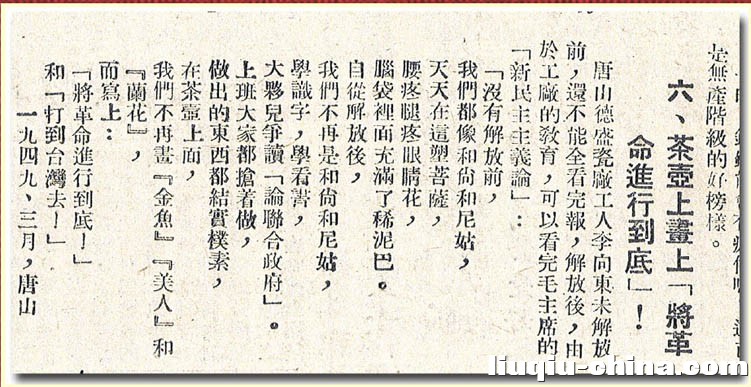 是無產階級的好榜樣。
六、茶壺上畫上「將革
命進行到底」！
唐山德盛瓷廠工人李向東未解放
前，還不能全看完報，解放後，由
於工廠的教育，可以看完毛主席的
「新民主主義論」：
「沒有解放前，
我們都像和尙和尼姑，
天天在這塑菩薩，
腰疼腿疼眼睛花，
腦袋裡面充滿了稀泥巴。
自從解放後，
我們不再是和尙和尼姑，
學識字，學看書，
大夥兒爭讀「論聯合政府」。
上班大家都搶着做，
做出的東西都結實樸素，
在茶壺上面，
我們不再畫『金魚』『美人』和
『蘭花』，
而寫上：
「將革命進行到底！」
和「打到台灣去！」
一九四九、三月，唐山
liuqiu-china.com